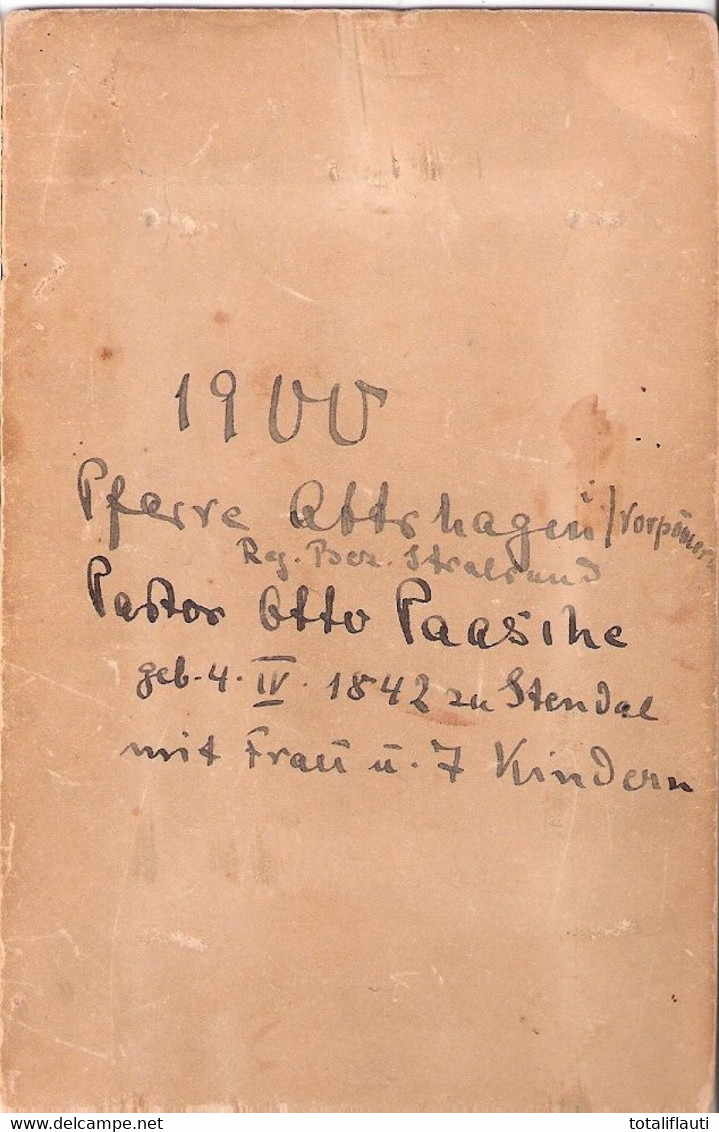 1900
Pfarre Attshagen / Vorpomern
Reg. Bez. Stralsund
Pastor Otto Paasche
geb. 4. IV. 1842 zu Stendal
mit Frau u. 7 Kindern
Delcampe.net
totaliflauti